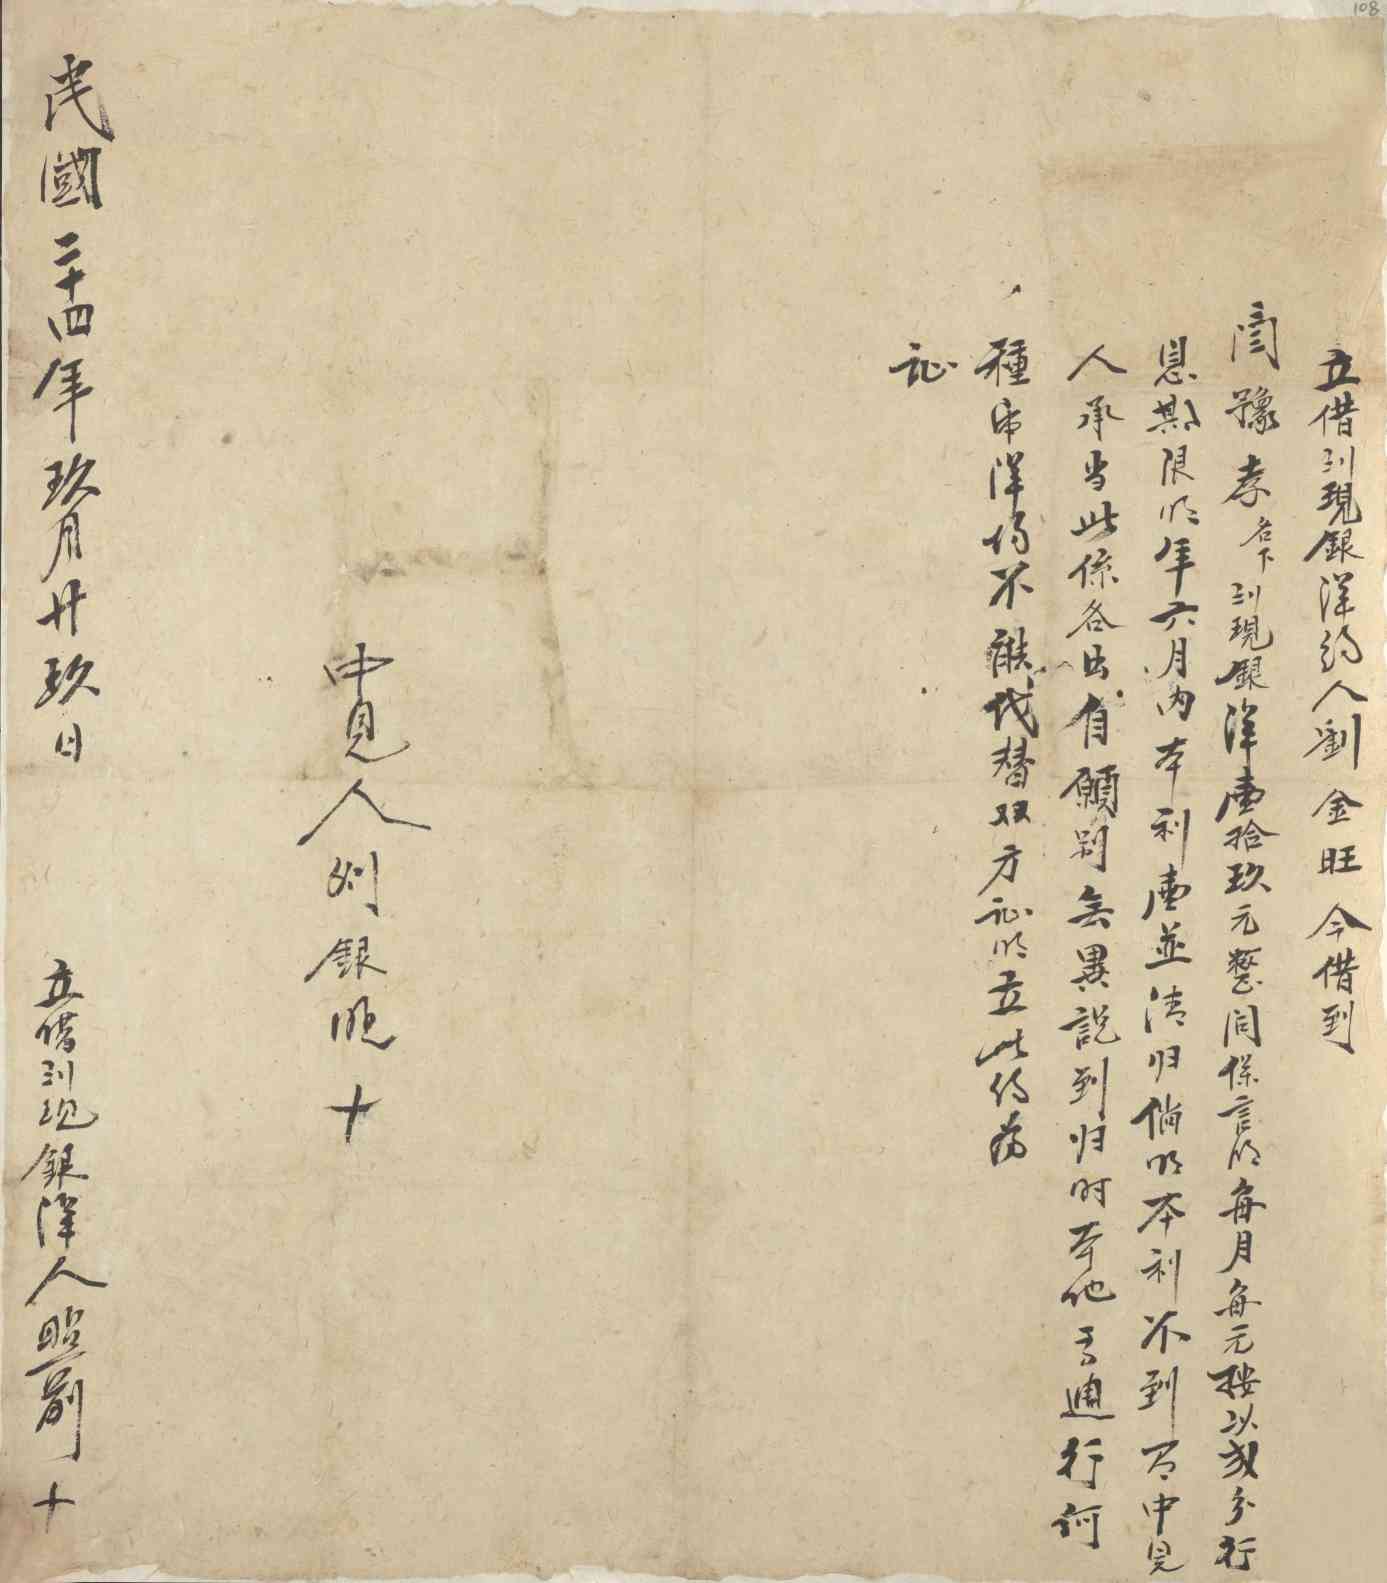 108
立借到現銀洋約人劉金旺今借到
閆豫孝名下到現銀洋壹拾玖元整同係言明每月每元按以贰分行
息期限明年六月內本利壹並清归倘明本利不到有中見
人承当此係各出自願別無異說到归時本他方通行何
種市洋約不能代替双方証明立此約為
証
中見人刘銀 十
民國二十四年玖月廿玖日 立借到現銀洋人照前十